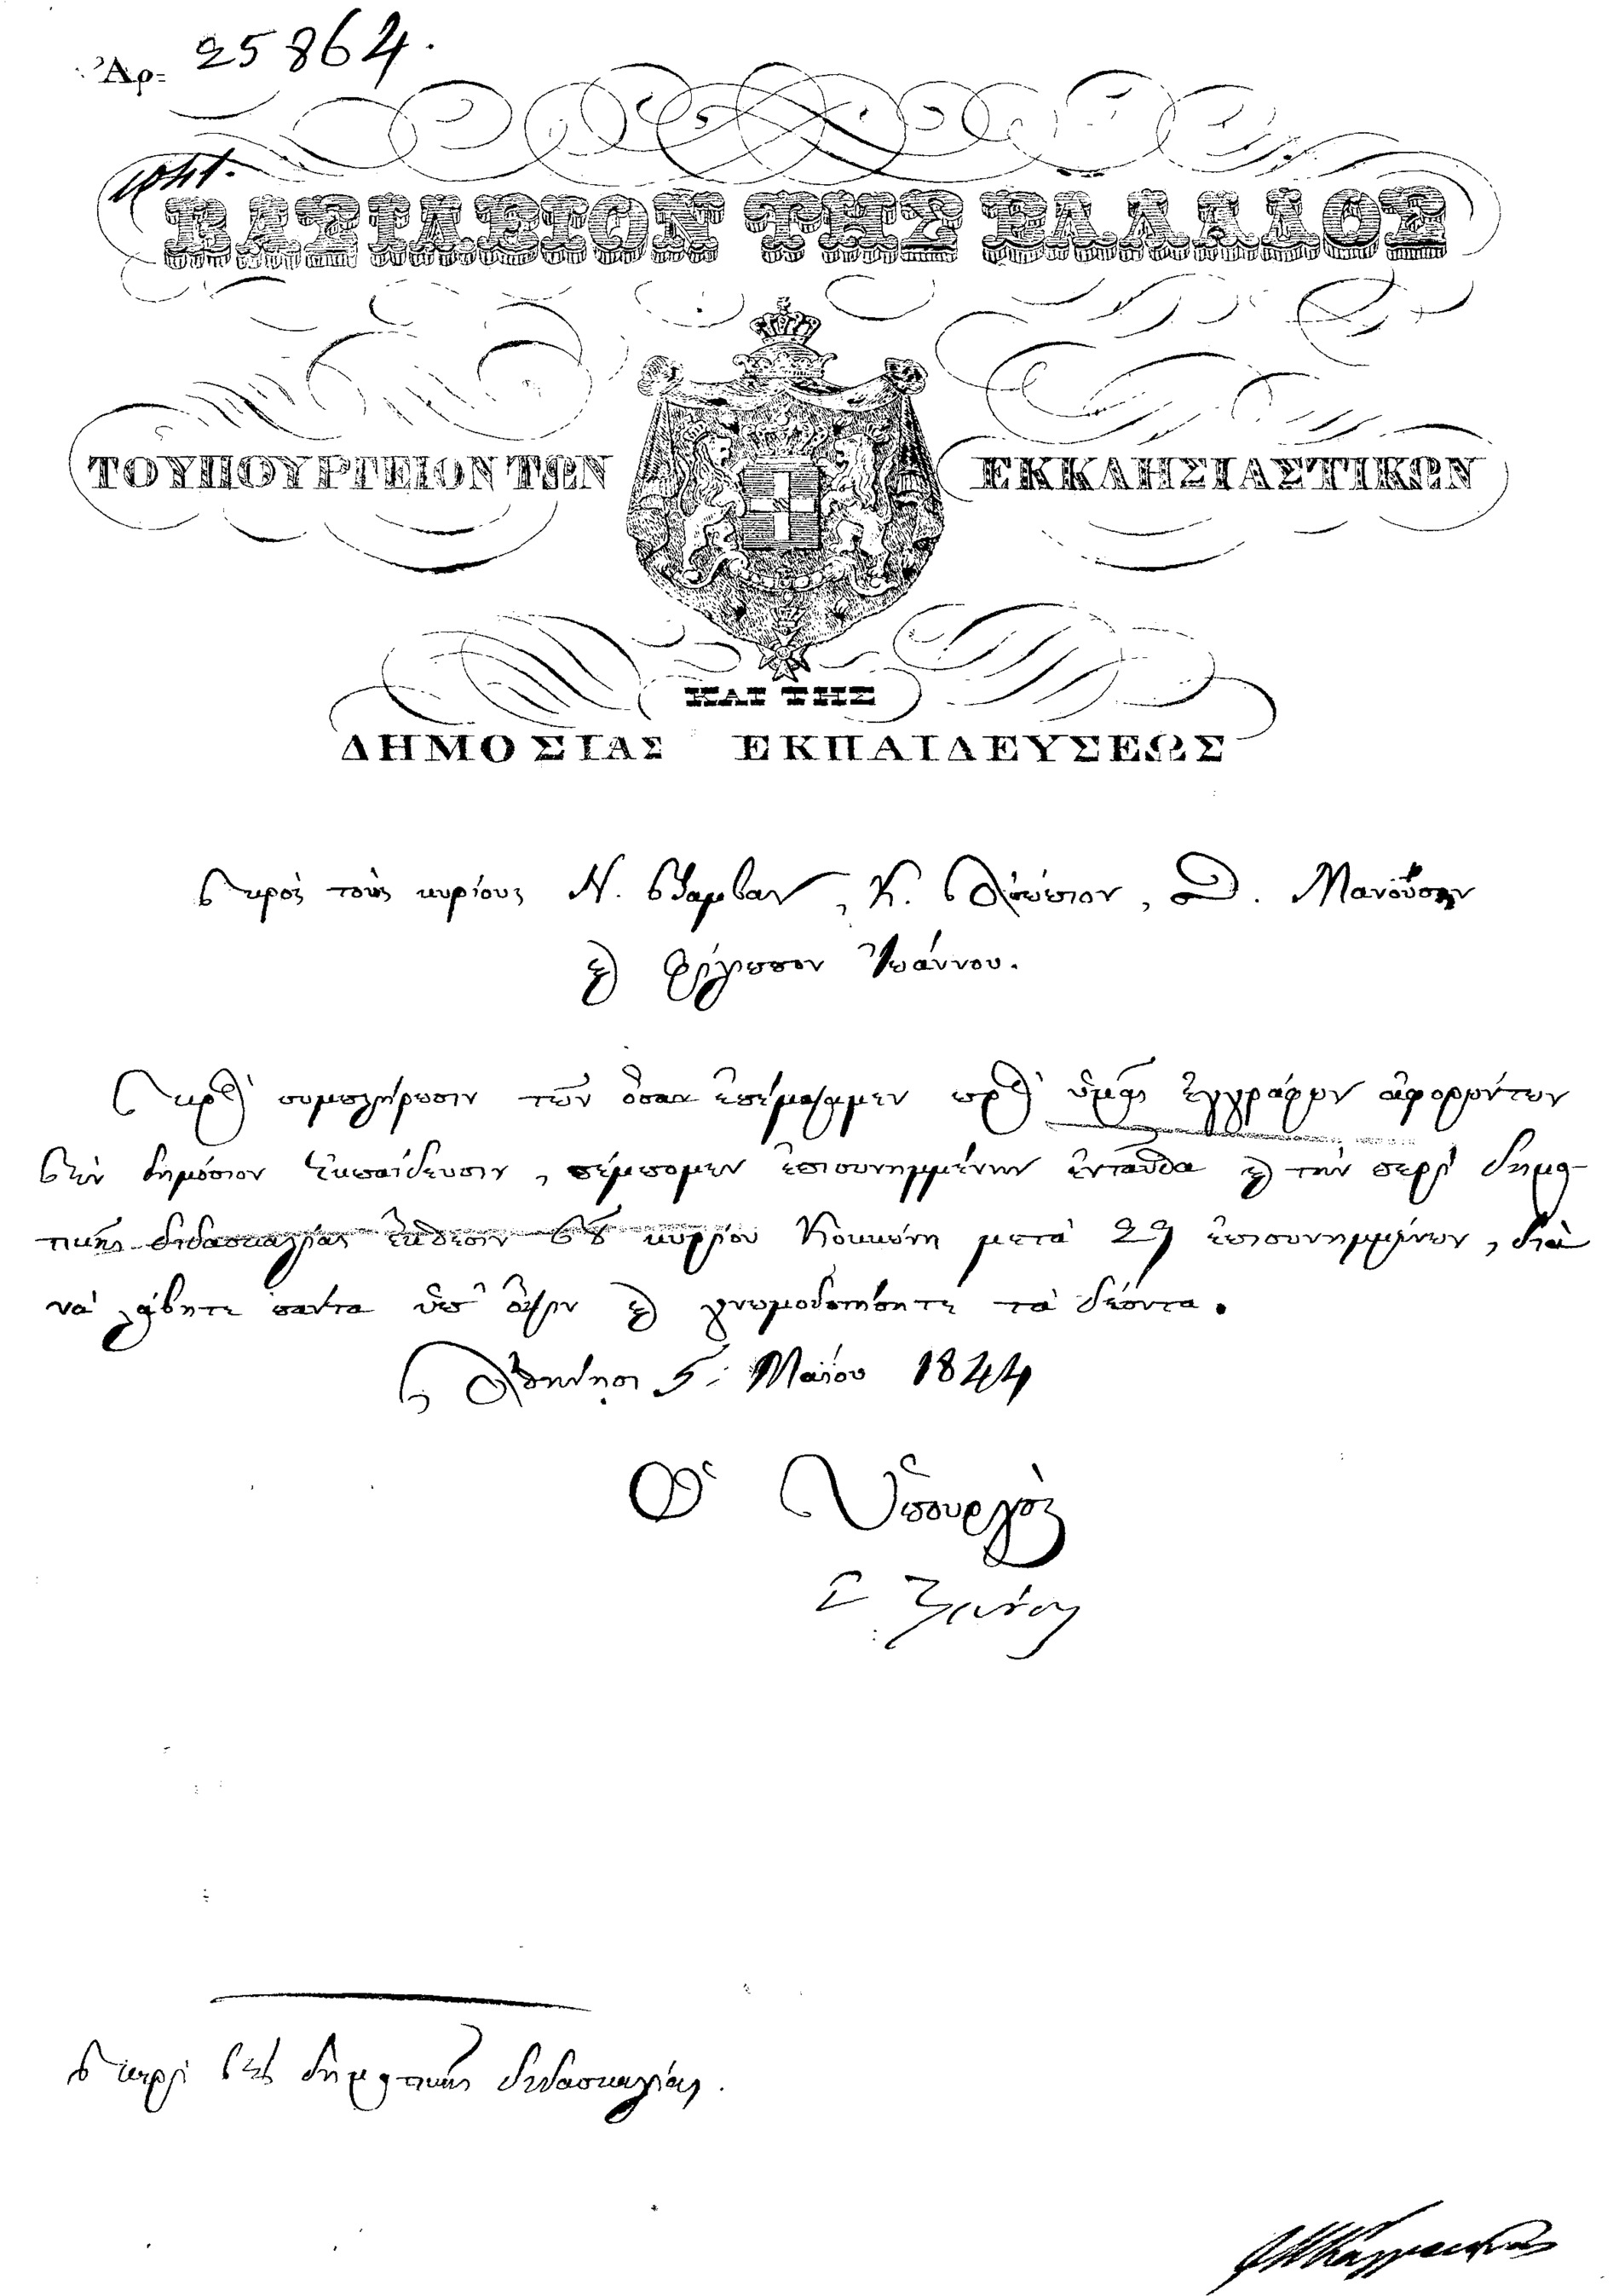 Ἀρ= 25864.
ΒΑΣΙΛΕΙΟΝ ΤΗΣ ΕΛΛΑΔΟΣ
ΤΟ ΥΠΟΥΡΓΕΙΟΝ ΤΩΝ ΕΚΚΛΗΣΙΑΣΤΙΚΩΝ
ΚΑΙ ΤΗΣ
ΔΗΜΟΣΙΑΣ ΕΚΠΑΙΔΕΥΣΕΩΣ
Πρὸς τοὺς κυρίους Ν. Βάμβαν, Κ. Ἀσώπιον, Θ. Μανούσην
καὶ Φίλιππον Ἰωάννου.
Πρὸς συμπλήρωσιν τῶν ὅσων ἐπέμψαμεν πρὸς ὑμᾶς ἐγγράφων ἀφορώντων
τὴν δημόσιον ἐκπαίδευσιν, πέμπομεν ἐπισυνημμένην ἐνταῦθα καὶ τὴν περὶ δημο-
τικῆς διδασκαλίας ἔκθεσιν τοῦ κυρίου Κοκκώνη μετὰ 29 ἐπισυνημμένων, διὰ
νὰ λάβητε πάντα ὑπ' ὄψιν καὶ γνωμοδοτήσητε τὰ δέοντα.
Ἀθήνησι 5 Μαΐου 1844
Ὁ Ὑπουργὸς
Περὶ τῆς δημοτικῆς διδασκαλίας.